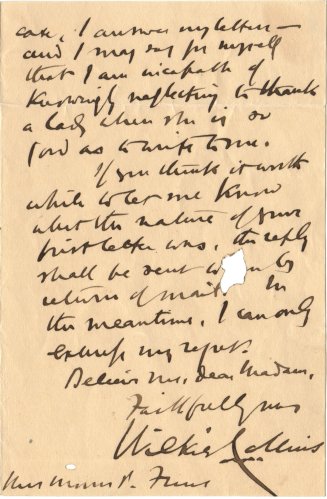 case, I answer my letters –
and I may say for myself
that I am incapable of
knowingly neglecting to thank
a lady when she is so
good as to write to me.
If you think it worth
while to let me know
what the nature of your
first letter was, the reply
shall be sent by
return of mail. In
the meantime, I can only
express my regret.
Believe me, dear Madam,
Faithfully yours
Wilkie Collins
Mrs